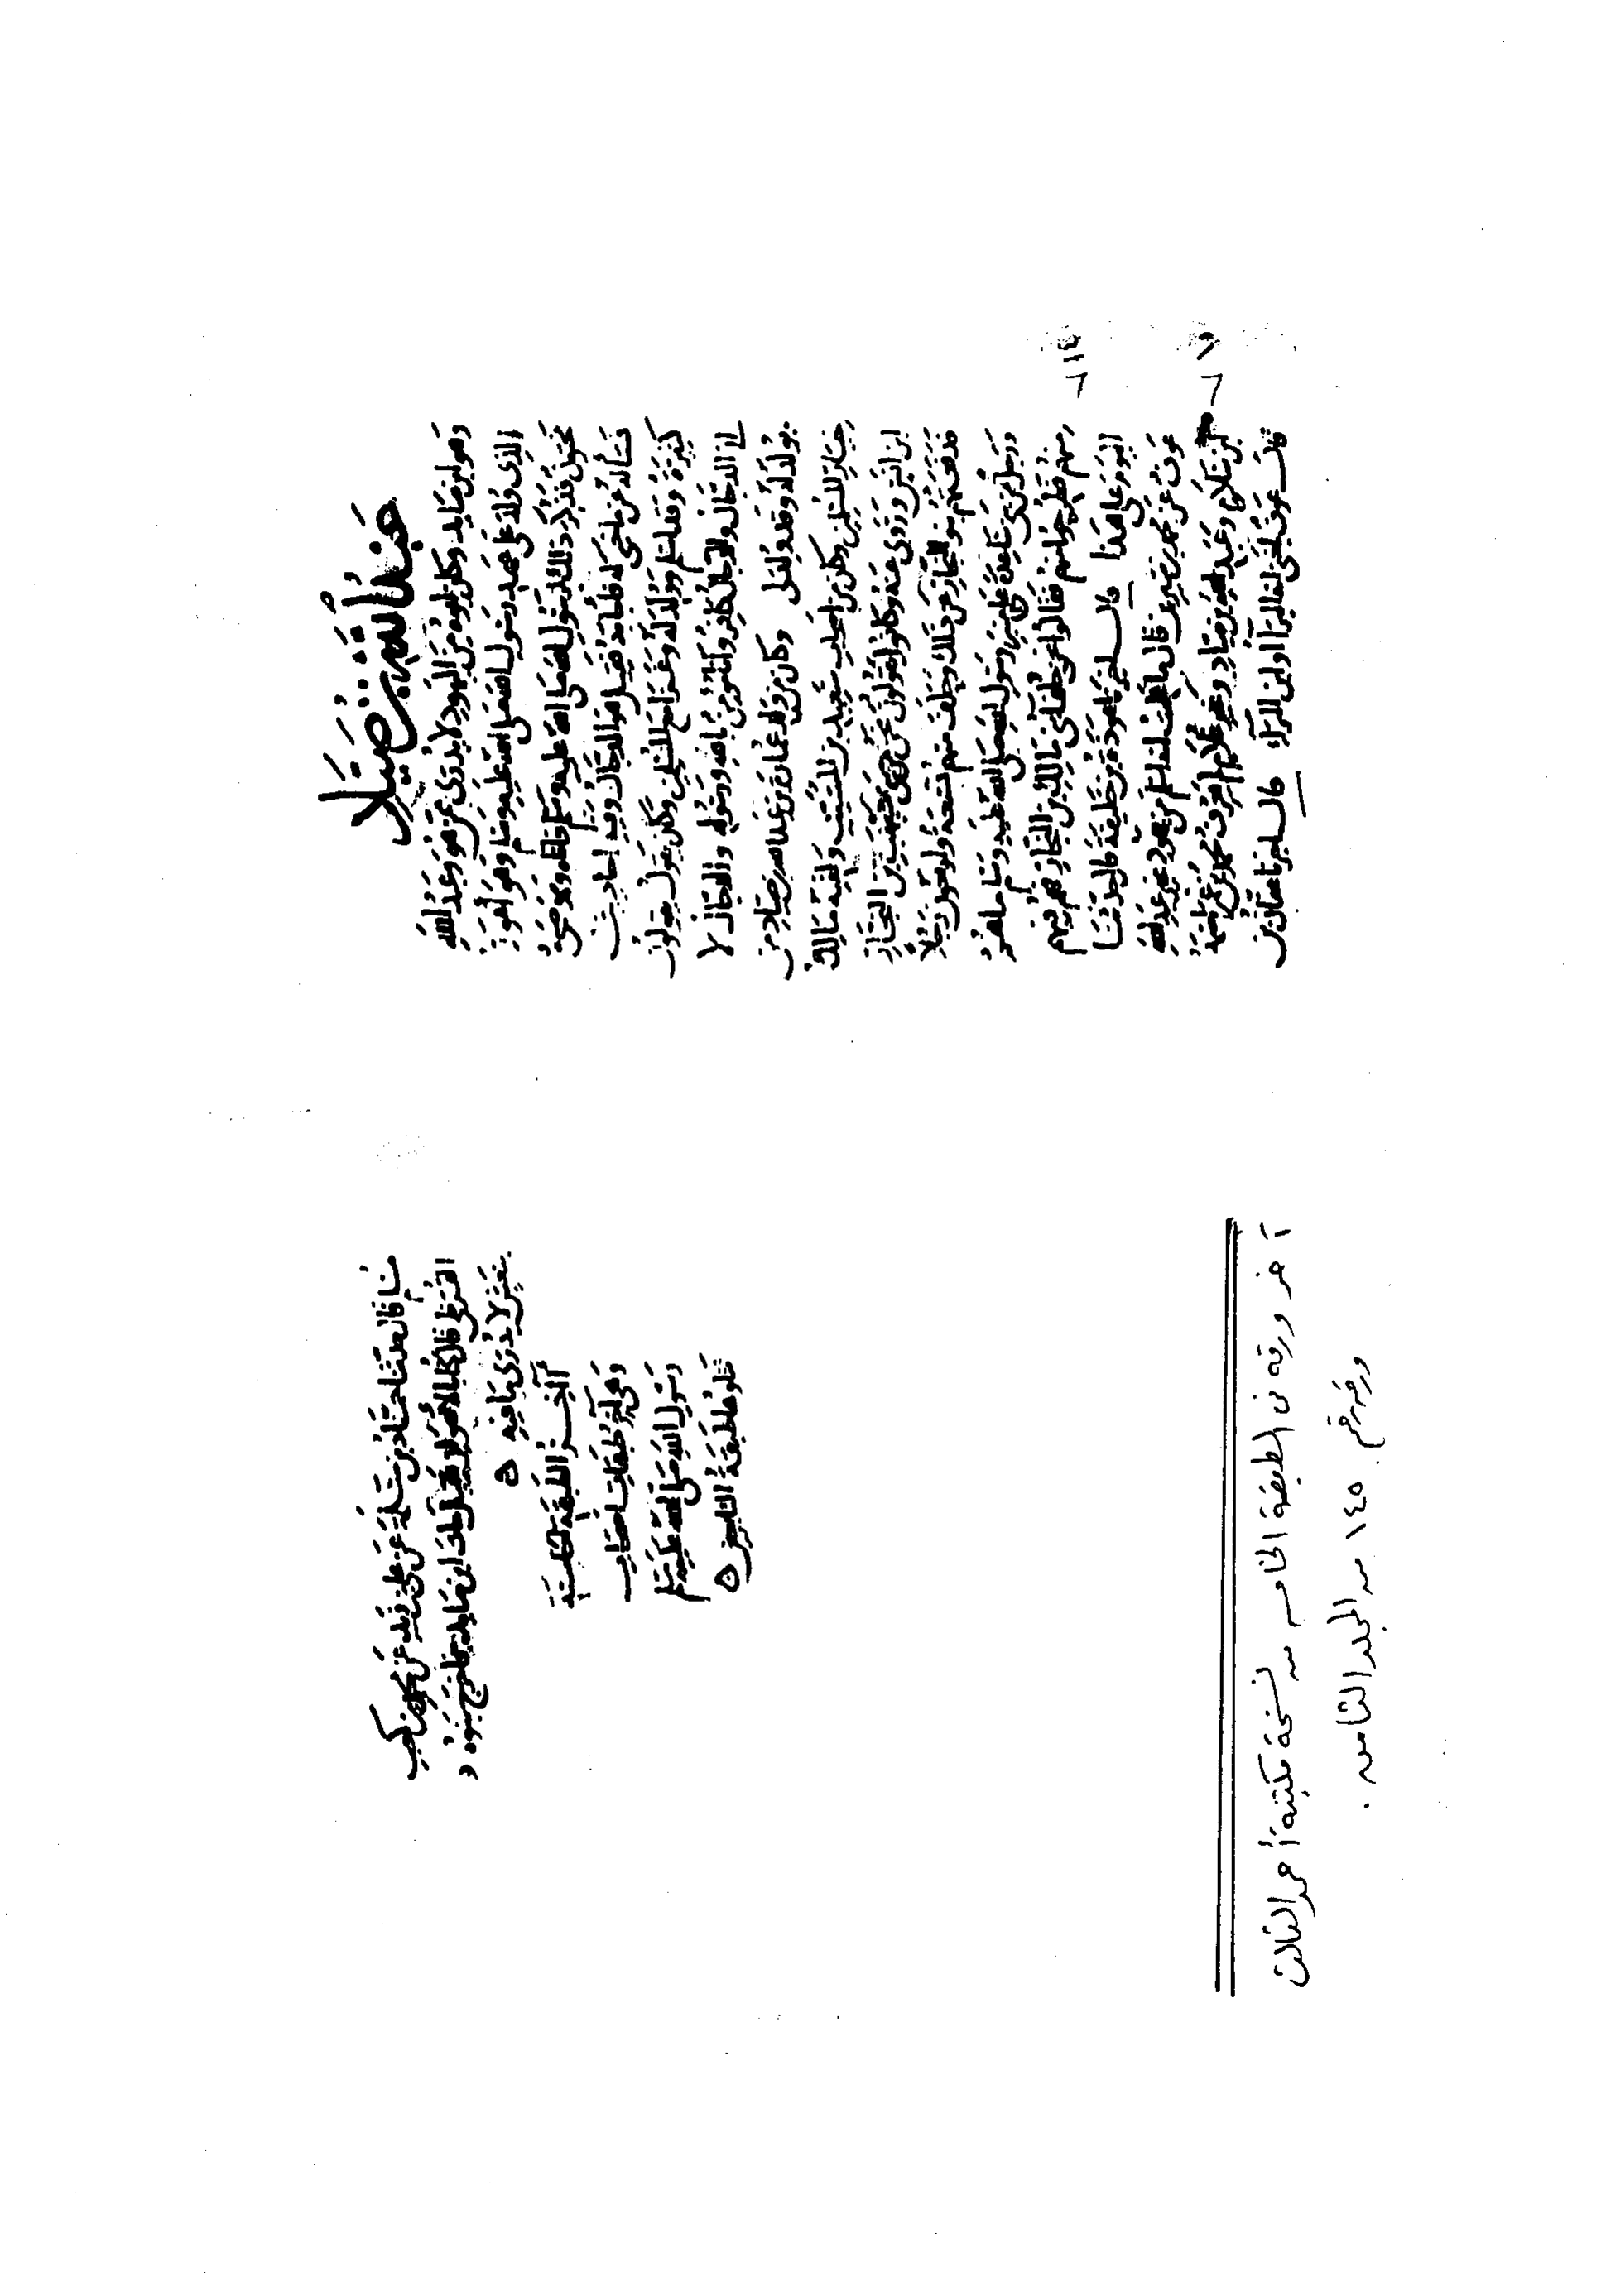 عبد الله بن صياد
وهو ابن صايد وكان ابوه من اليهود لا يدرى ممن هو وعبد الله
الذي ولد على عهد رسول الله صلى الله عليه وسلم وهو اعور
مختون فذكر ذلك لرسول الله صلى الله عليه وسلم فاتاه وقد
فسأله عن ما خبئ له فقيل هو الدجال وفيه احاديث
كثيرة وقد اسلم وولد له وغزا مع المسلمين وكان يقول يقولون
اني الدجال والدجال كافر وانا مؤمن بالله ورسوله والدجال لا
يولد له وقد ولد لي وكان من ولده عمارة بن عبد الله بن صياد من
خيار المسلمين وكان من اصحاب سعيد بن المسيب ولقيه مالك
ابن انس وروى عنه وكانوا يقولون نحن بنو اشيهب بن النجار
فدفعهم بنو النجار عن ذلك وحلف منهم تسعة واربعون رجلا
ورجل من بني ساعدة على منبر رسول الله صلى الله عليه وسلم ما هم
منهم فطرحوا منهم فقالوا نحن حلفاء بني مالك بن النجار فهم فيهم
اليوم على هذا قال اخبرنا هوذة بن خليفة قال حدثنا
عوف عن محمد بن سيرين قال ما علمت احدا اسلم من يهود غير عبد الله
ابن سلام وعبد الله بن صياد وغير غلام
قال عوف بلغني انه البراء او ابن البراء قال اخبرنا عفان بن
مسلم قال حدثنا حماد بن سلمة عن علي بن زيد عن محمد بن كعب
القرظي قال
لا يدرى ما فيه ٥
آخر الطبقة الخامسة
وهي آخر طبقات اصحاب
رسول الله صلى الله عليه وسلم
تتلوها طبقة التابعين ٥
آخر ورقة في الطبقة الخامسة من نسخة مكتبة أحمد الثالث
ورقة رقم ١٤٥ من المجلد الثامن.